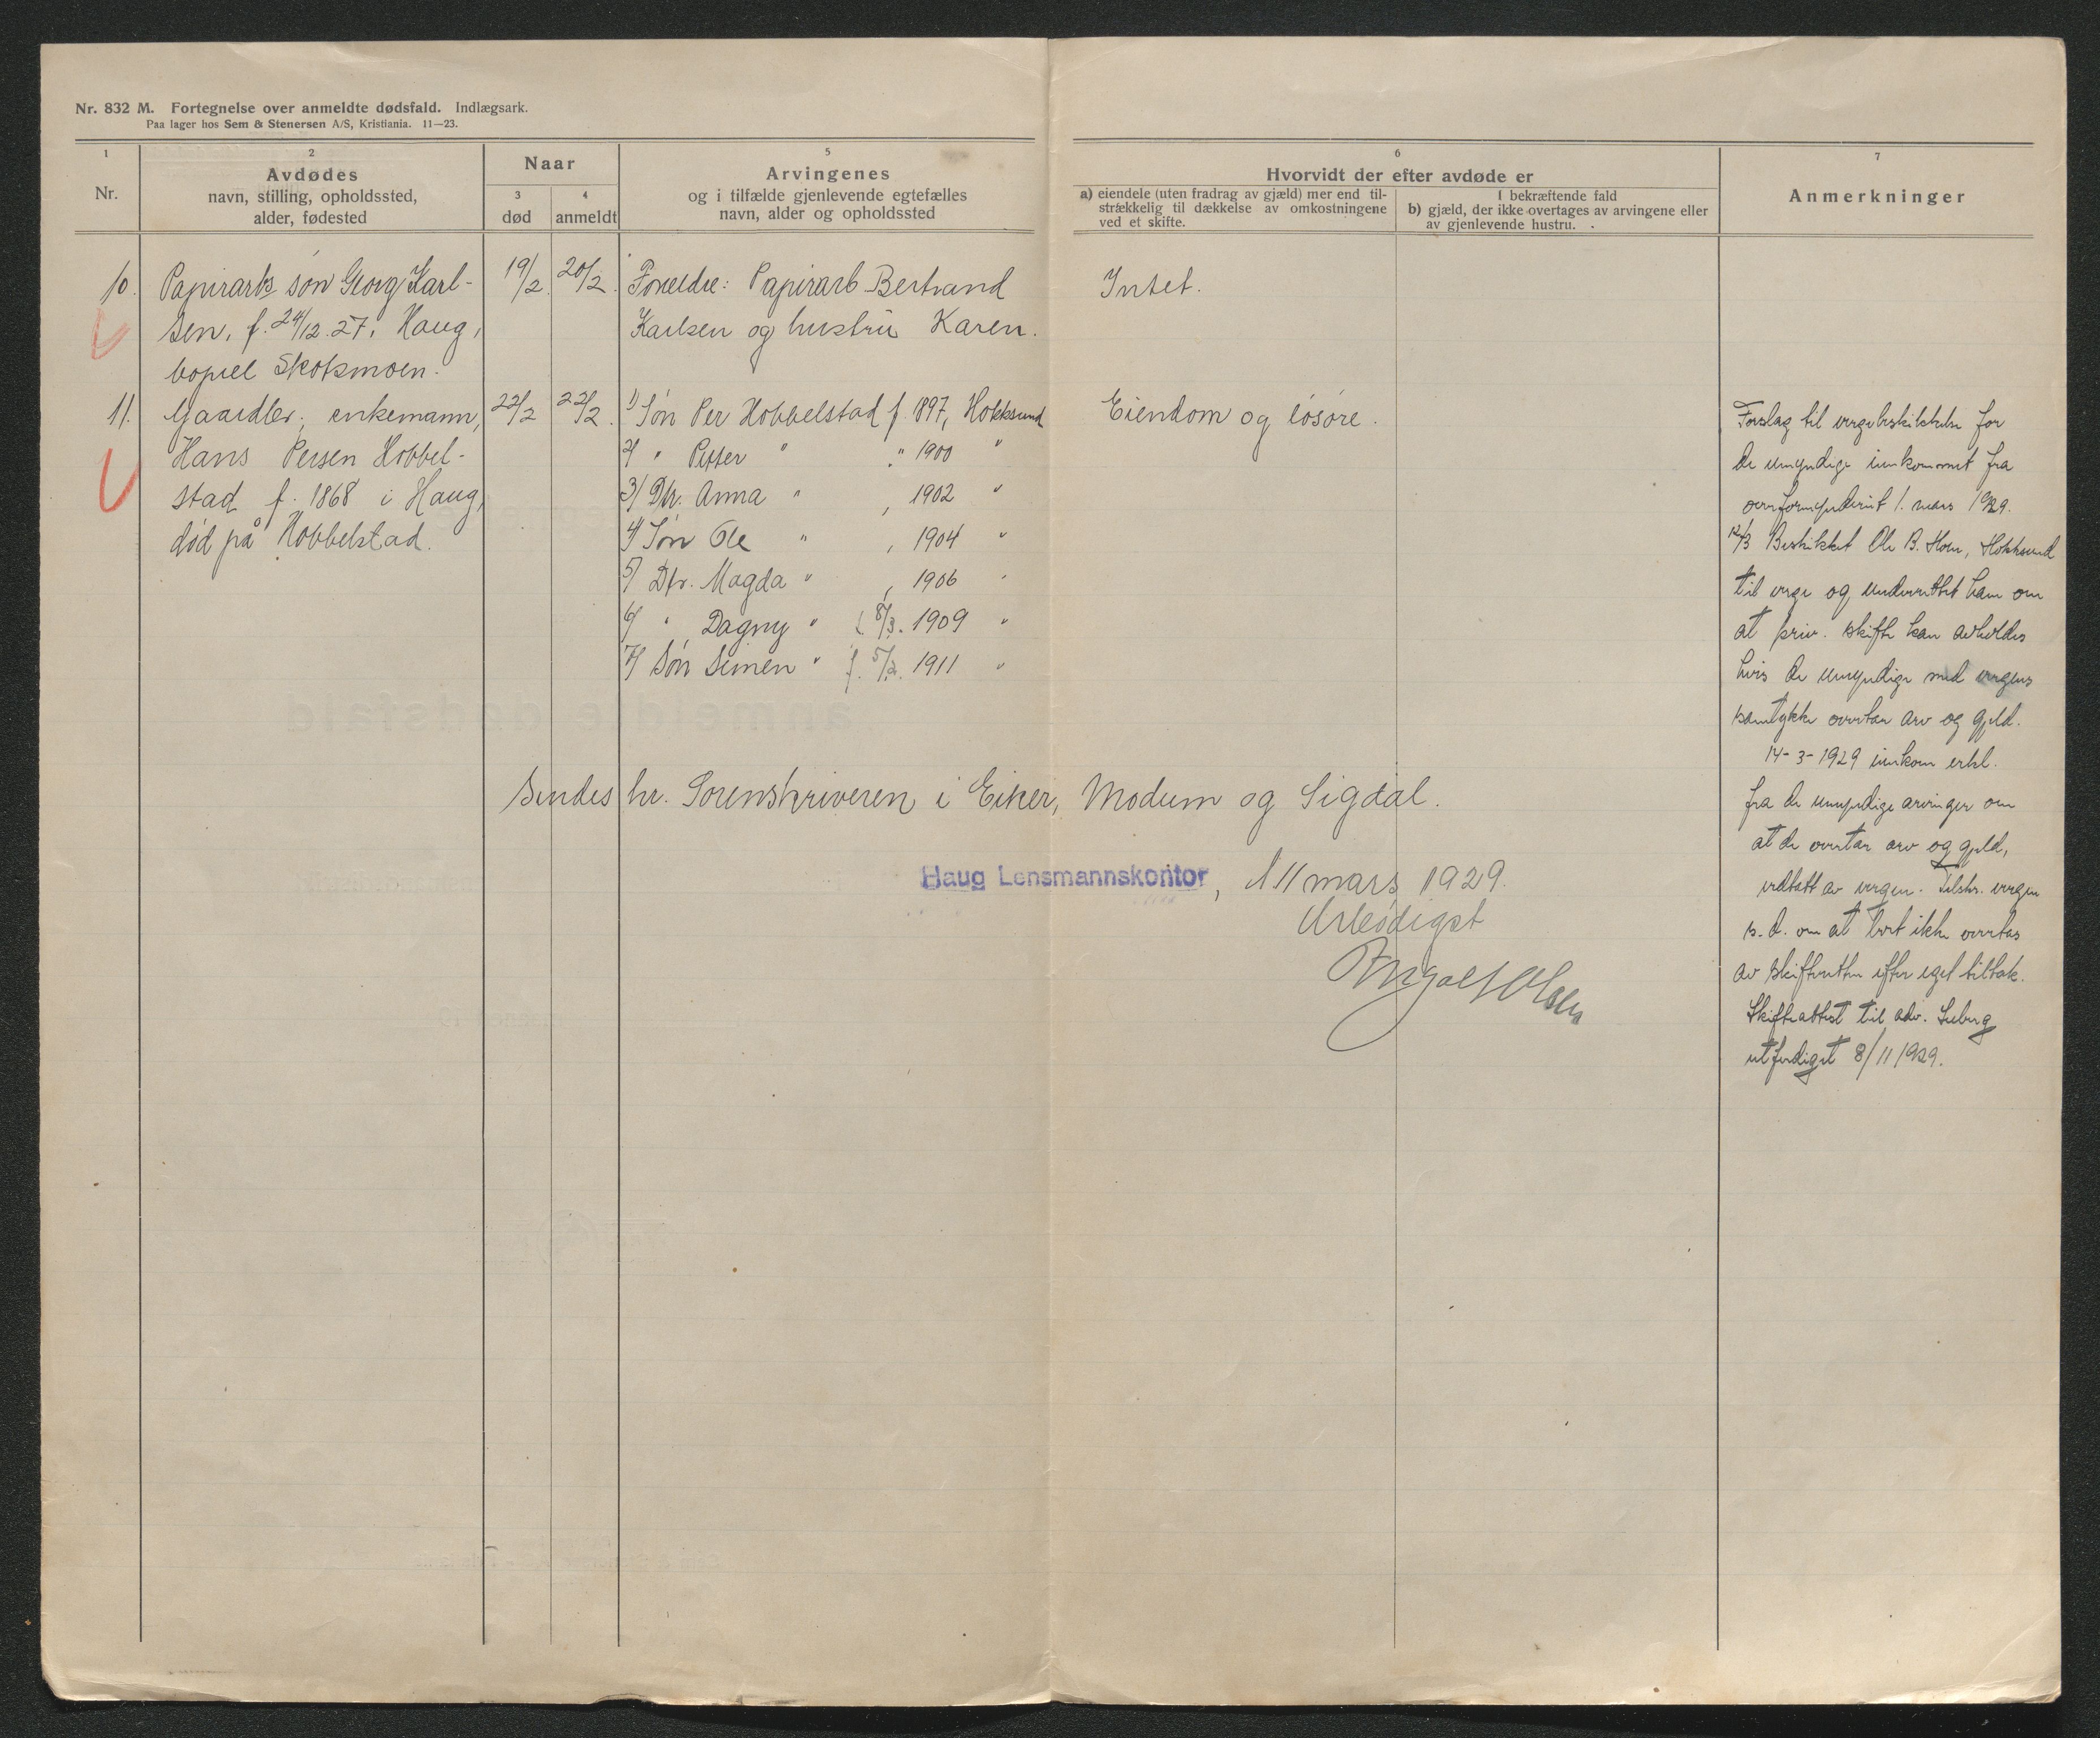 Nr. 832 M. Fortegnelse over anmeldte dødsfald. Indlægsark.
Paa lager hos Sem & Stenersen A/S, Kristiania. 11—23.
1
Nr.
2
Avdødes
navn, stilling, opholdssted,
alder, fødested
Naar
3
død
4
anmeldt
5
Arvingenes
og i tilfælde gjenlevende egtefælles
navn, alder og opholdssted
6
Hvorvidt der efter avdøde er
a) eiendele (uten fradrag av gjæld) mer end til-
strækkelig til dækkelse av omkostningene
ved et skifte.
I bekræftende fald
b) gjæld, der ikke overtages av arvingene eller
av gjenlevende hustru.
7
Anmerkninger
10. Papirarbs søn Georg Karl- 19/2. 20/2. Foreldre: Papirarb Bertrand Intet.
sen, f. 24/12.27. Haug, Karlsen og hustru Karen.
bopæl Skotsmoen.
11. Gaardbr., enkemann, 22/2 22/2. 1) Søn Per Hobbelstad f. 1897, Hokksund Eiendom og løsøre.
Hans Persen Hobbel- 2) " Petter " " 1900 "
stad f. 1868 i Haug, 3/ Dtr. Anna " , 1902 "
død på Hobbelstad. 4/ Søn Ole " , 1904 "
5/ Dtr. Magda " , 1906 "
6/ " Dagny " f. 8/3. 1909 "
7/ Søn Simen " f. 5/2. 1911 "
Forslag til vergebeskikkelse for
de umyndige innkommet fra
overformynderiet 1. mars 1929.
12/3 Beskikket Ole B. Horn, Hokksund
til verge og underrettet ham om
at priv. skifte kan avholdes
hvis de umyndige med vergens
samtykke overtar arv og gjeld.
14-3-1929 innkom erkl.
fra de umyndige arvinger om
at de overtar arv og gjeld,
vedtatt av vergen. Tilskr. vergen
s.d. om at boet ikke overtas
av skifteretten efter eget tiltak.
Skifteattest til adv.
utferdiget 8/11 1929.
Sendes hr. Sorenskriveren i Eiker, Modum og Sigdal.
Haug Lensmannskontor, d 11 mars 1929.
Ærbødigst
Ingolf Olsen